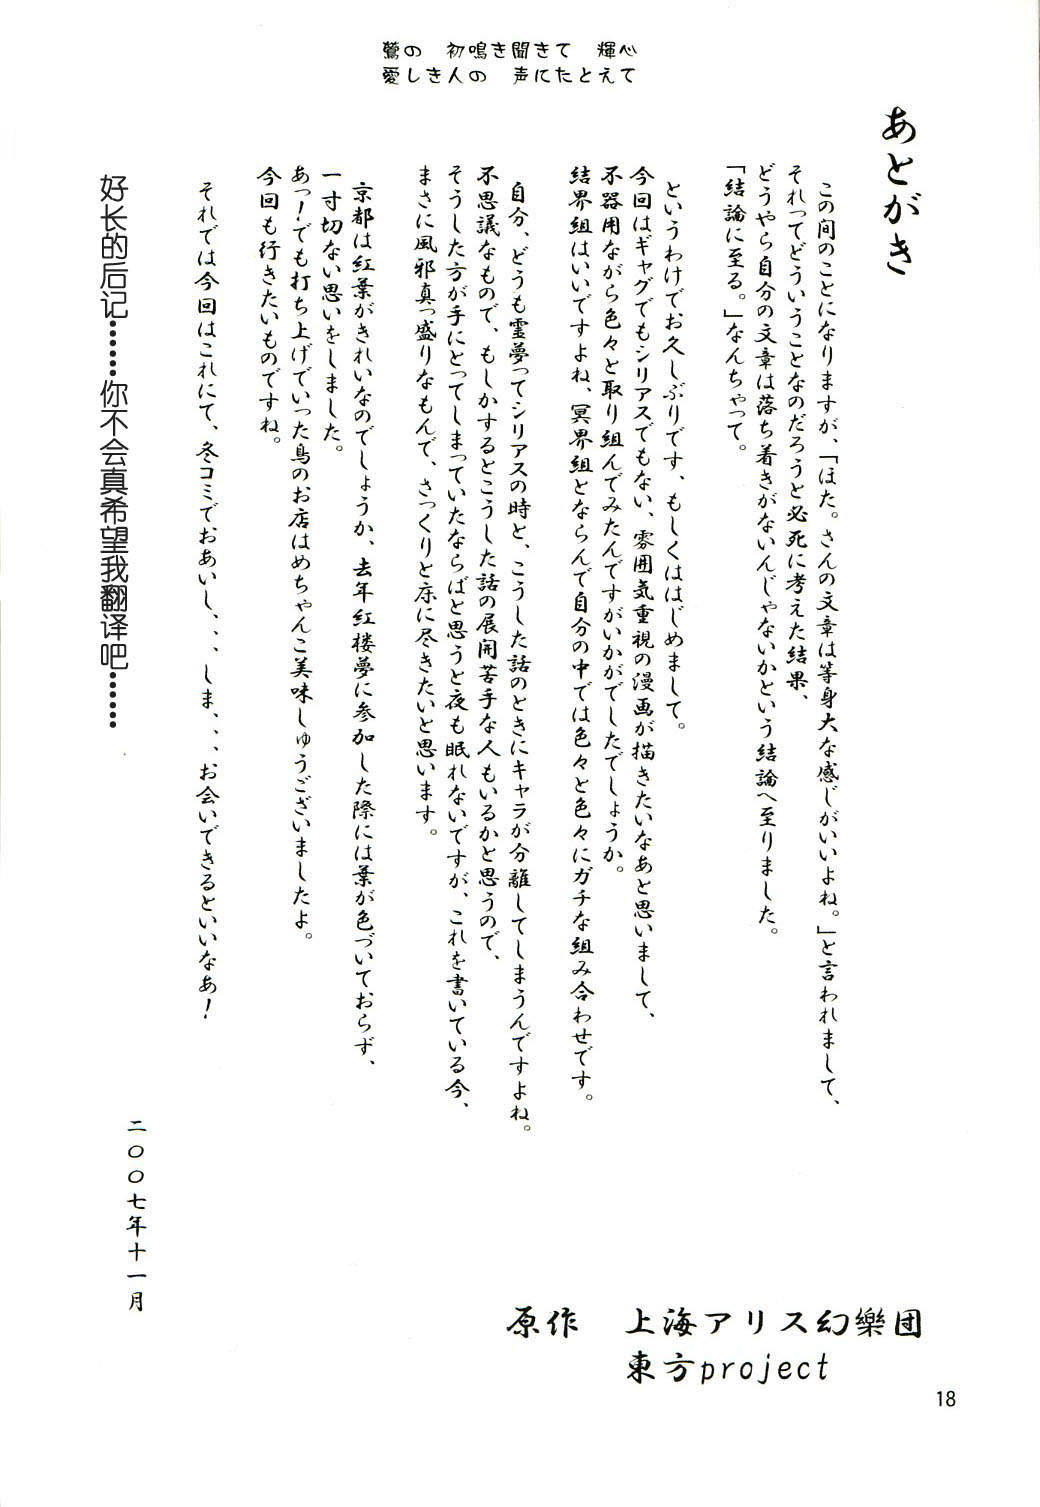 鶯の　初鳴き聞きて　輝心
愛しき人の　声にたとえて
あとがき
この間のことになりますが、「ほた。さんの文章は等身大な感じがいいよね。」と言われまして、
それってどういうことなのだろうと必死に考えた結果、
どうやら自分の文章は落ち着きがないんじゃないかという結論へ至りました。
「結論に至る。」なんちゃって。
というわけでお久しぶりです、もしくははじめまして。
今回はギャグでもシリアスでもない、雰囲気重視の漫画が描きたいなあと思いまして、
不器用ながら色々と取り組んでみたんですがいかがでしたでしょうか。
結界組はいいですよね、冥界組とならんで自分の中では色々と色々にガチな組み合わせです。
自分、どうも霊夢ってシリアスの時と、こうした話のときにキャラが分離してしまうんですよね。
不思議なもので、もしかするとこうした話の展開苦手な人もいるかと思うので、
そうした方が手にとってしまっていたならばと思うと夜も眠れないですが、これを書いている今、
まさに風邪真っ盛りなもんで、さっくりと床に尽きたいと思います。
京都は紅葉がきれいなのでしょうか、去年紅楼夢に参加した際には葉が色づいておらず、
一寸切ない思いをしました。
あっ！でも打ち上げでいった鳥のお店はめちゃんこ美味しゅうございましたよ。
今回も行きたいものですね。
それでは今回はこれにて、冬コミでおあいし、、、しま、、、お会いできるといいなあ！
好长的后记……你不会真希望我翻译吧……
二〇〇七年十一月
原作　上海アリス幻樂団
東方project
18